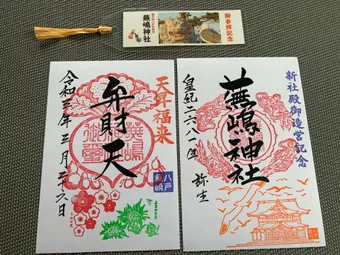 御参拝記念
蕪嶋神社
弁財天
令和三年三月二十六日
八戸
新社殿御造営記念
蕪嶋神社
皇紀二六八一年 弥生